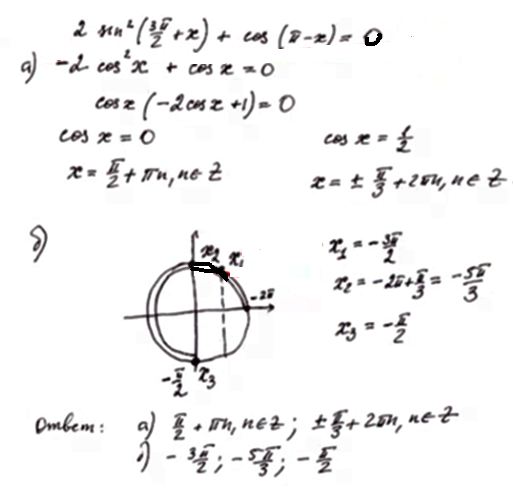 2 sin²(3π/2 + x) + cos (π - x) = 0
а) -2 cos²x + cos x = 0
cos x (-2cos x + 1) = 0
cos x = 0 cos x = 1/2
x = π/2 + πn, n ∈ Z x = ± π/3 + 2πn, n ∈ Z
б) x₂ x₁ x₁ = -3π/2
-2π x₂ = -2π + π/3 = -5π/3
-π/2 x₃ x₃ = -π/2
Ответ: а) π/2 + πn, n ∈ Z; ± π/3 + 2πn, n ∈ Z
б) - 3π/2; - 5π/3; - π/2